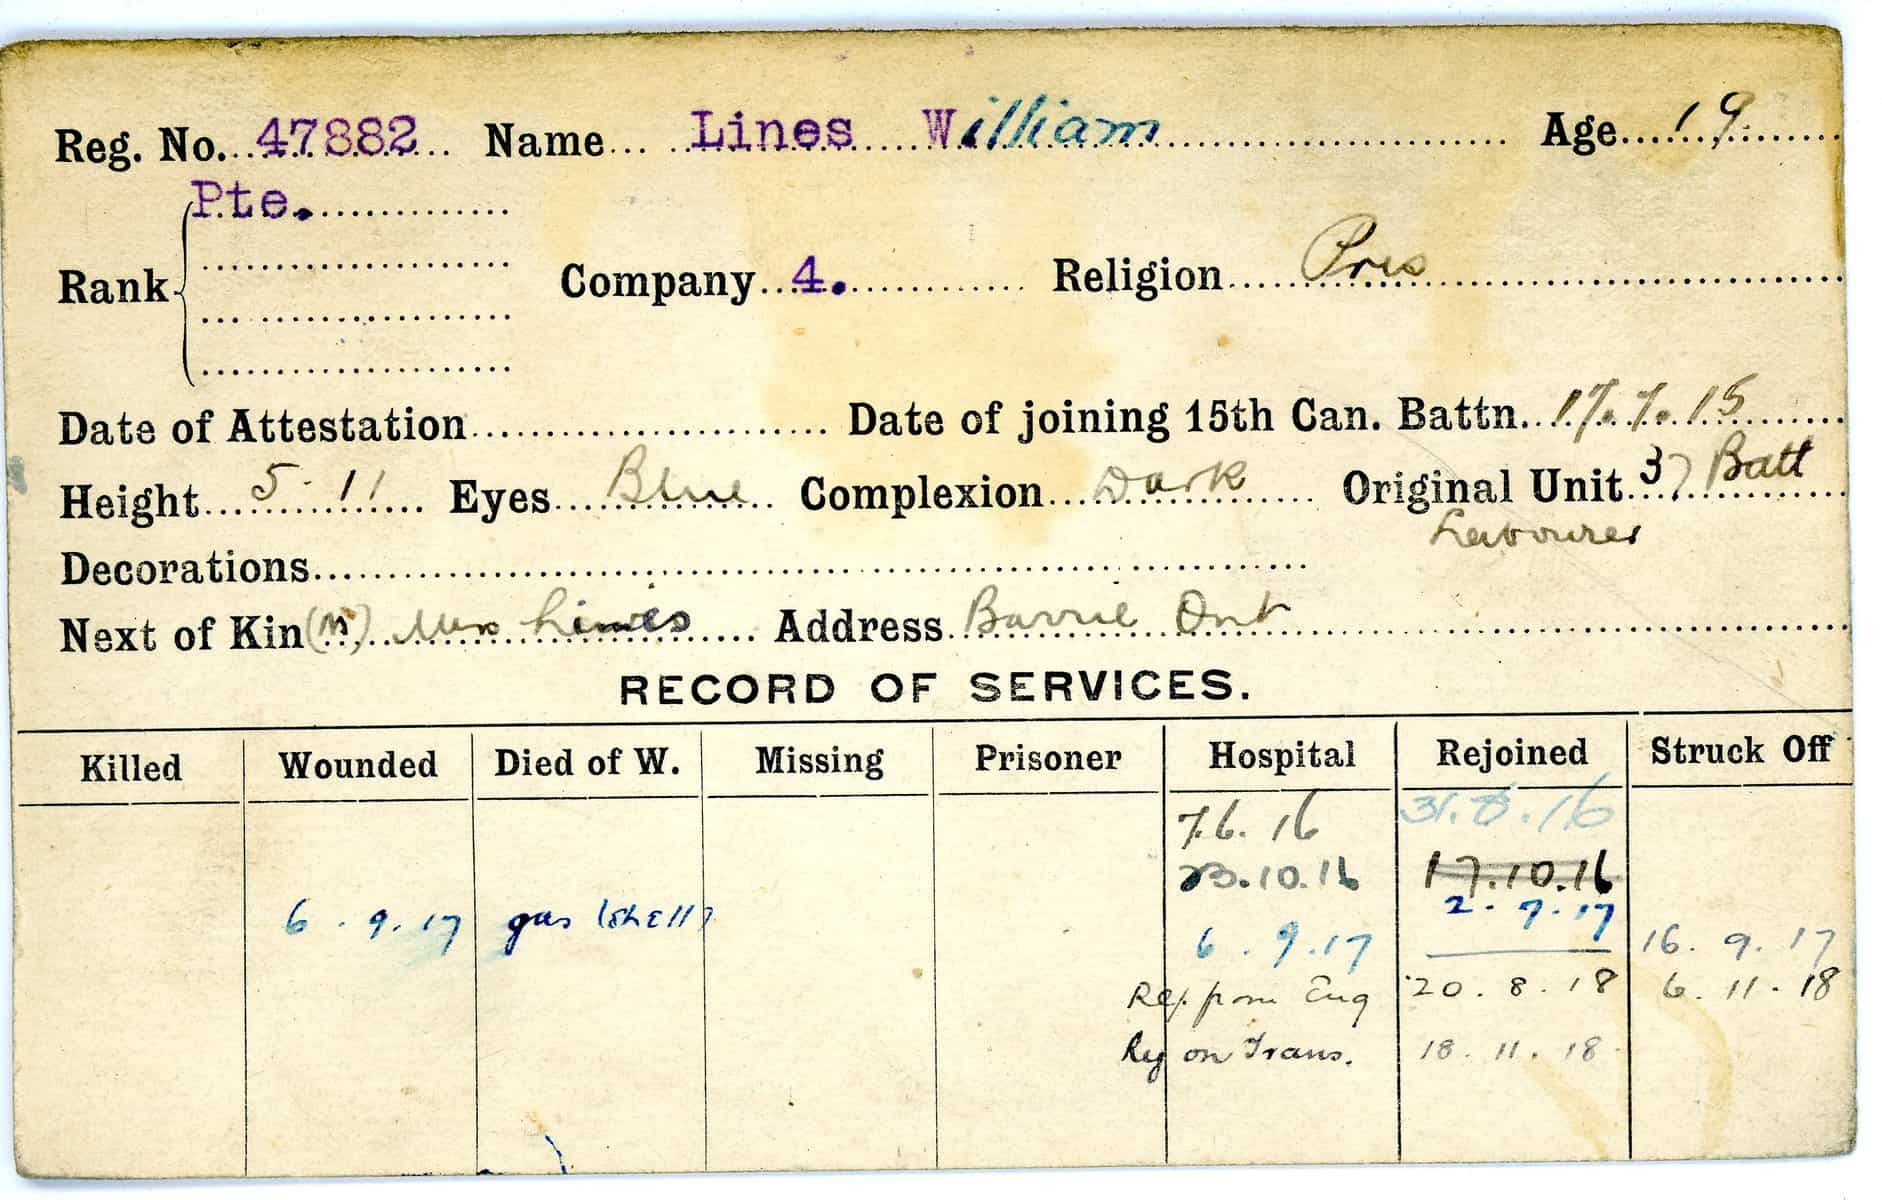 Reg. No. 47882 Name Lines William Age 19
Pte.
Rank Company 4. Religion Pres
Date of Attestation Date of joining 15th Can. Battn. 17.7.15
Height 5-11 Eyes Blue Complexion Dark Original Unit 37 Batt
Labourer
Decorations
Next of Kin (M) Mrs Lines Address Barrie Ont
RECORD OF SERVICES.
Killed Wounded Died of W. Missing Prisoner Hospital Rejoined Struck Off
7.6.16 31.8.16
23.10.16 17.10.16
2.7.17
6.9.17 gas (shell) 6.9.17 16.9.17
Rej from Eng 20.8.18 6.11.18
Rej on Trans. 18.11.18